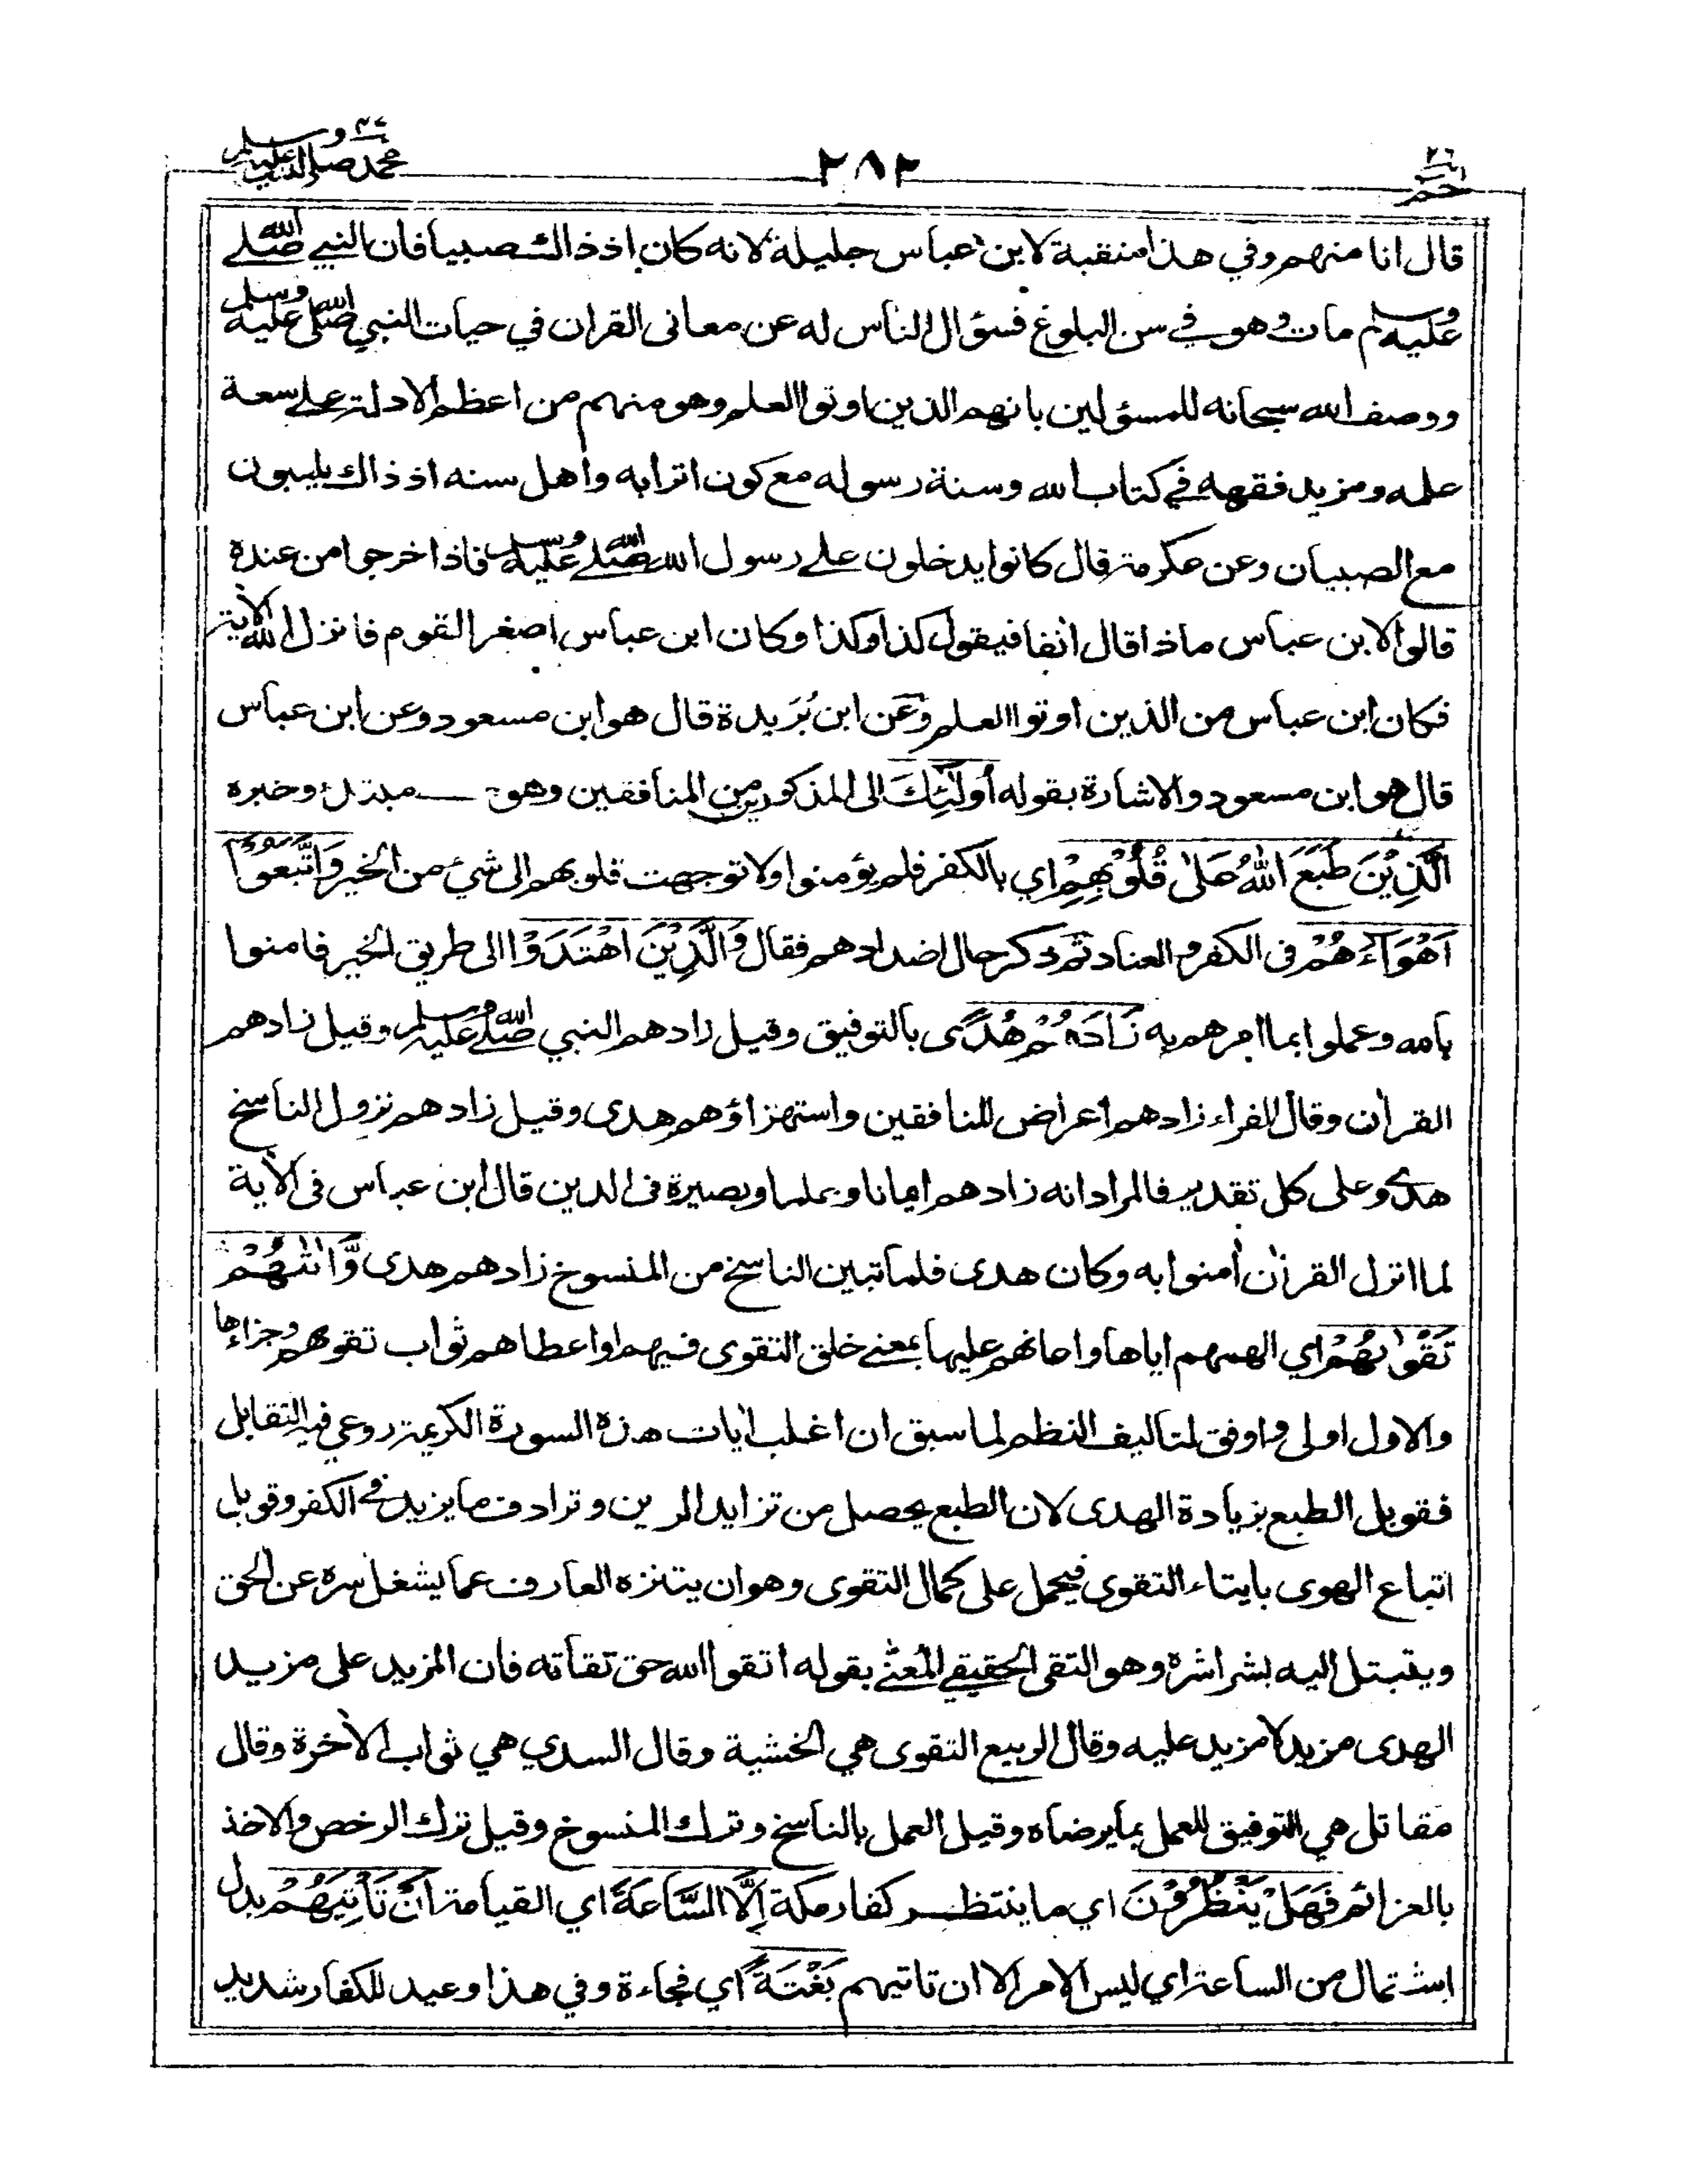 حم ٢٦
٢٨٢
محمد صلى الله عليه وسلم ٤٧
قال انا منهم وفي هذا منقبة لابن عباس جليلة لانه كان اذ ذاك صبيا فان النبي صلى الله
عليه وسلم مات وهو في سن البلوغ فسؤال الناس له عن معانى القرآن في حيات النبي صلى الله عليه وسلم
ووصف الله سبحانه للمسؤلين بانهم الذين اوتوا العلم وهو منهم من اعظم الادلة على سعة
علمه ومزيد فقهه في كتاب الله وسنة رسوله مع كون اترابه واهل سنه اذ ذاك يلعبون
مع الصبيان وعن عكرمة قال كانوا يدخلون على رسول الله صلى الله عليه وسلم فاذا خرجوا من عنده
قالوا لابن عباس ماذا قال انفا فيقول كذا وكذا وكان ابن عباس اصغر القوم فانزل الله الآية
فكان ابن عباس من الذين اوتوا العلم وعن ابن بُرَيدة قال هو ابن مسعود وعن ابن عباس
قال هو ابن مسعود والاشارة بقوله أُولٰئِكَ الى المذكورين من المنافقين وهو مبتدأ وخبره
الَّذِيْنَ طَبَعَ اللهُ عَلىٰ قُلُوْبِهِمْ اي بالكفر فلم يؤمنوا ولا توجهت قلوبهم الى شيء من الخير وَاتَّبَعُوْا
اَهْوَآءَهُمْ فى الكفر والعناد ثم ذكر حال اضدادهم فقال وَالَّذِيْنَ اهْتَدَوْا الى طريق الخير فامنوا
بالله وعملوا بما امرهم به زَادَهُمْ هُدًى بالتوفيق وقيل زادهم النبي صلى الله عليه وسلم وقيل زادهم
القرآن وقال الفراء زادهم اعراض المنافقين واستهزاؤهم هدى وقيل زادهم نزول الناسخ
هدى وعلى كل تقدير فالمراد انه زادهم ايمانا وعلما وبصيرة فى الدين قال ابن عباس فى الآية
لما انزل القرآن أمنوا به وكان هدى فلما تبين الناسخ من المنسوخ زادهم هدى وَّاٰتٰهُمْ
تَقْوٰىهُمْ اي الهمهم اياها واعانهم عليها بمعنى خلق التقوى فيهم او اعطاهم ثواب تقوهم وجزاءها
والاول اولى واوفق لتاليف النظم لما سبق ان اغلب أيات هذه السورة الكريمة روعي فيه التقابل
فقوبل الطبع بزيادة الهدى لان الطبع يحصل من تزايد الرين وترادف ما يزيد في الكفر وقوبل
اتباع الهوى بايتاء التقوى فيحمل على كمال التقوى وهو ان يتنزه العارف عما يشغل سره عن الحق
ويتبتل اليه بشراشره وهو التقى الحقيقي المعنى بقوله اتقوا الله حق تقاته فان المزيد على مزيد
الهدى مزيد لا مزيد عليه وقال الربيع التقوى هي الخشية وقال السدي هي ثواب الآخرة وقال
مقاتل هي التوفيق للعمل بما يرضاه وقيل العمل بالناسخ وترك المنسوخ وقيل ترك الرخص والاخذ
بالعزائم فَهَلْ يَنْظُرُوْنَ اي ما ينتظر كفار مكة اِلَّا السَّاعَةَ اي القيامة اَنْ تَأْتِيَهُمْ بدل
اشتمال من الساعة اي ليس الامر الا ان تاتيهم بَغْتَةً اي فجاءة وفي هذا وعيد للكفار شديد